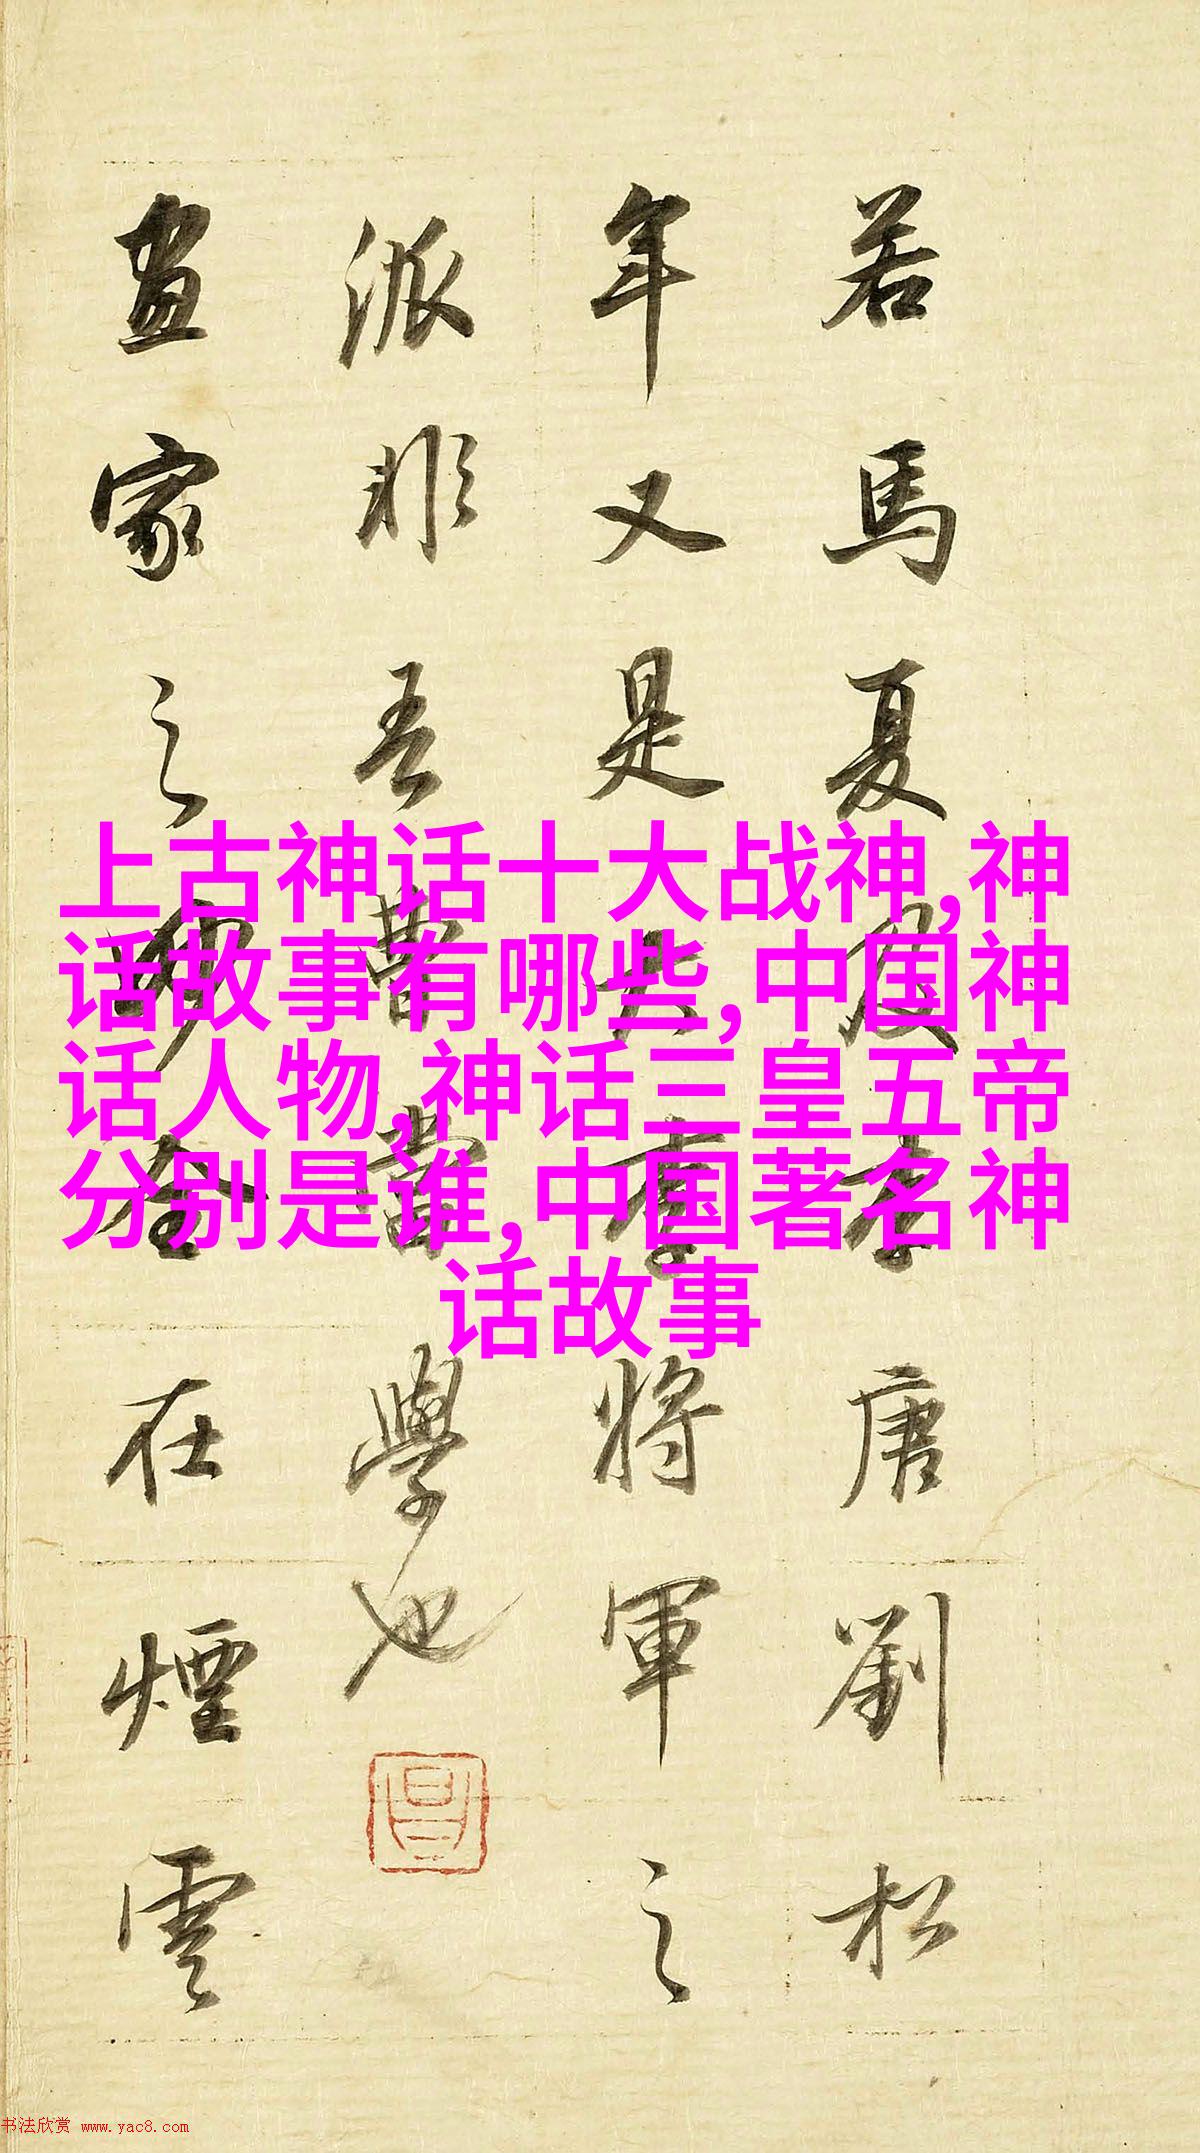 若馬夏及李唐劉松
年又是大李將軍之
派非吾曹當學也
畫家之妙全在煙雲
上古神话十大战神,神
话故事有哪些,中国神
话人物,神话三皇五帝
分别是谁,中国著名神
话故事
书法欣赏 www.yac8.com